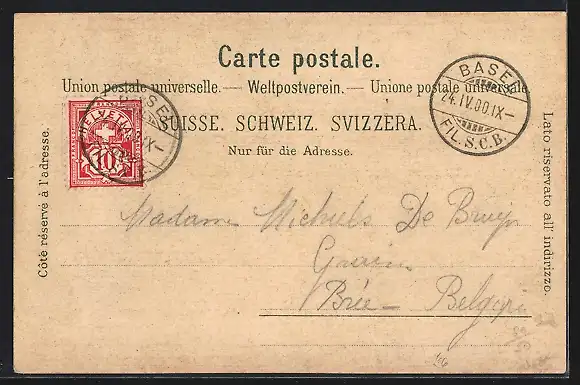 Carte postale.
Union postale universelle. — Weltpostverein. — Unione postale universale
SUISSE. SCHWEIZ. SVIZZERA.
Nur für die Adresse.
Côte réservé à l'adresse.
Lato riservato all' indirizzo.
HELVETIA
10
BASEL
BASEL
24.IV.00.IX–
FIL.S.C.B.
Madame Michiels De Bruyn
Brée – Belgique